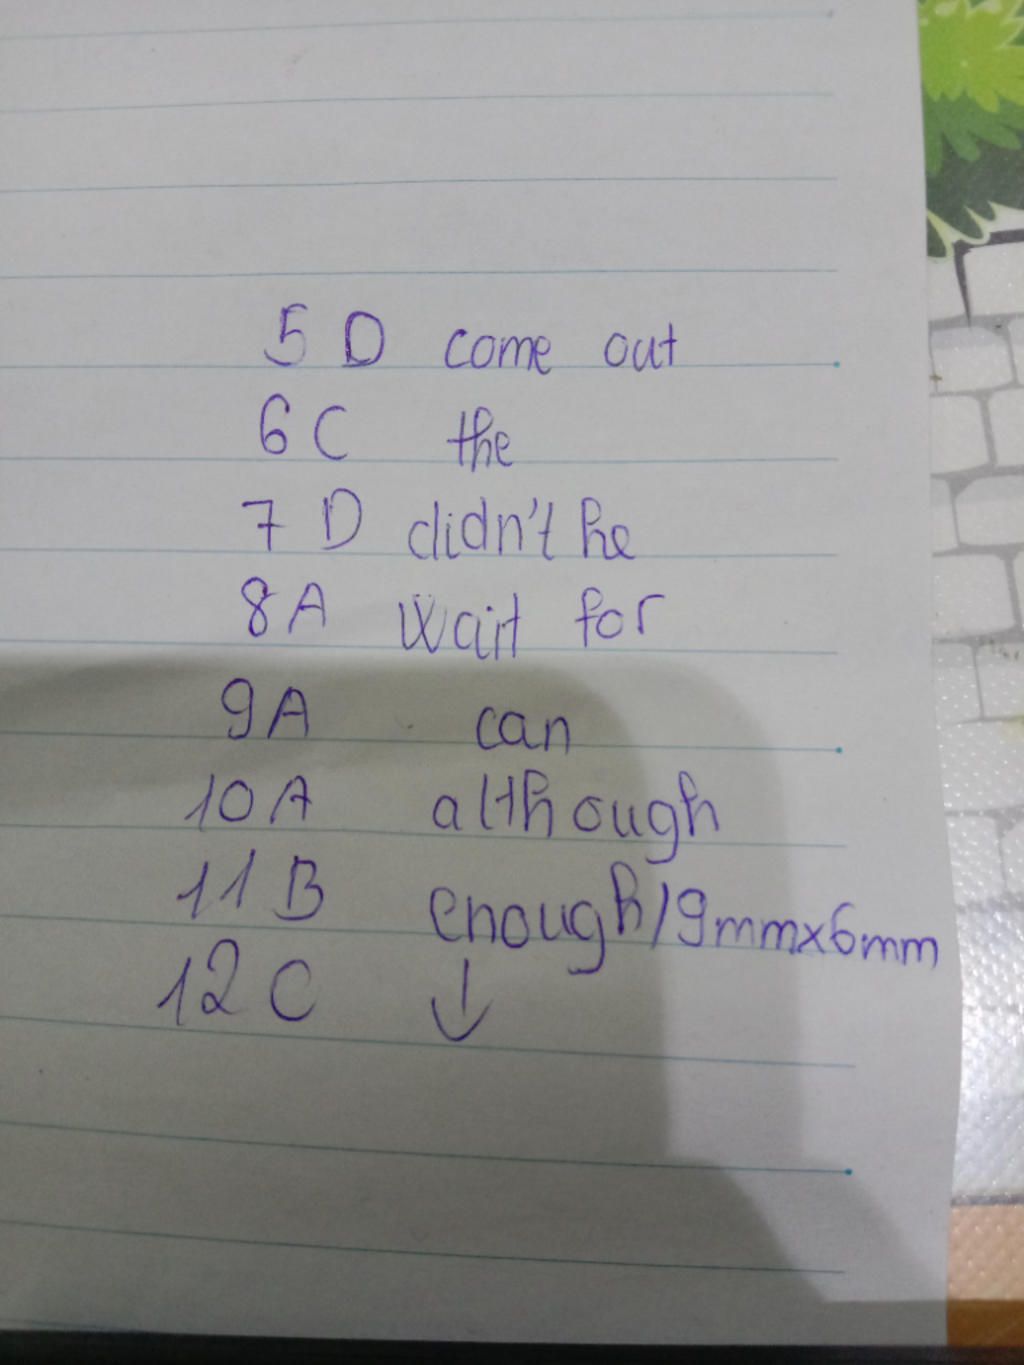 5 D come out
6 C the
7 D didn't he
8 A wait for
9 A can
10 A although
11 B enough/9mmx6mm
12 C ↓